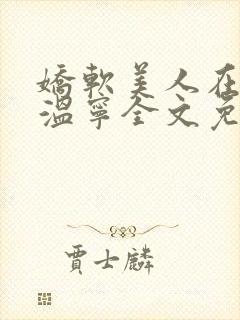 嬌軟美人在
溫寧全文免
賈士麟